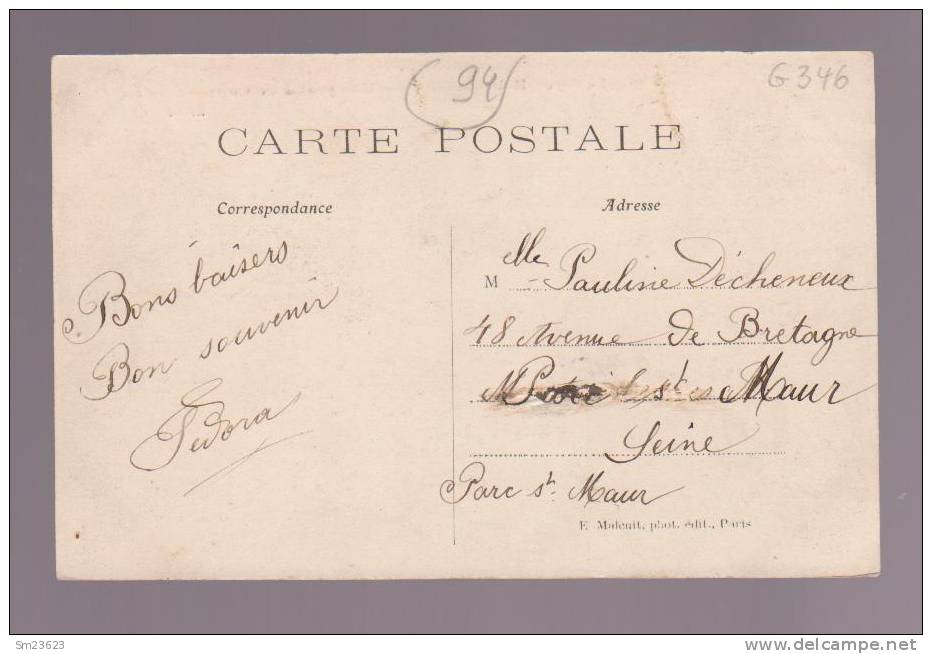 (94)
G 346
CARTE POSTALE
Correspondance
Adresse
Bons baîsers
Bon souvenir
Fedora
M elle Pauline Décheneux
48 Avenue de Bretagne
Parc st Maur
Seine
Parc st Maur
E. Malcuit, phot. édit., Paris
Sm23623
www.delcampe.net